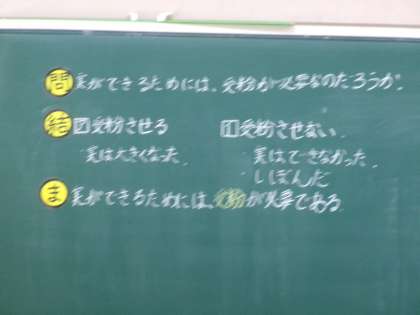 問 実ができるためには、受粉が必要なのだろうか。
結 ア受粉させる イ受粉させない。
実は大きくなった。 実はできなかった。
しぼんだ
ま 実ができるためには、受粉が必要である。